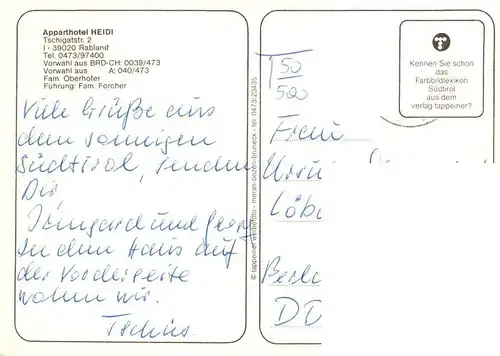 Apparthotel HEIDI
Tschigatstr. 2
I - 39020 Rabland
Tel. 0473/97400
Vorwahl aus BRD-CH: 0039/473
Vorwahl aus A: 040/473
Fam. Oberhofer
Führung: Fam. Forcher
Viele Grüße aus
dem sonnigen
Südtirol, senden
Dir,
Irmgard und Georg
In dem Haus auf
der Vorderseite
wohnen wir.
Tschüs.
© tappeiner werbefoto - meran-bozen-bruneck - tel. 0473-23435
50
500
Kennen Sie schon
das
Farbbildlexikon
Südtirol
aus dem
verlag tappeiner?
Frau
Löb
Berl
D